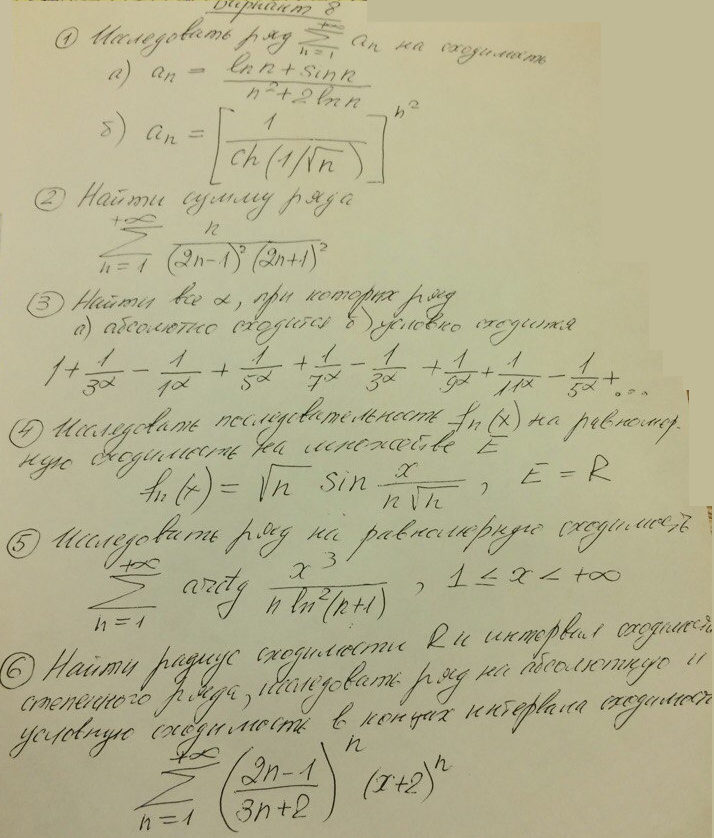 Вариант 8
① Исследовать ряд \sum_{n=1}^{+\infty} a_n на сходимость
а) a_n = \frac{\ln n + \sin n}{n^2 + 2 \ln n}
б) a_n = \left[ \frac{1}{ch(1/\sqrt{n})} \right]^{n^2}
② Найти сумму ряда
\sum_{n=1}^{+\infty} \frac{n}{(2n-1)^2 (2n+1)^2}
③ Найти все α, при которых ряд
а) абсолютно сходится б) условно сходится
1 + \frac{1}{3^α} - \frac{1}{1^α} + \frac{1}{5^α} + \frac{1}{7^α} - \frac{1}{3^α} + \frac{1}{9^α} + \frac{1}{11^α} - \frac{1}{5^α} + ...
④ Исследовать последовательность f_n(x) на равномер-
ную сходимость на множестве E
f_n(x) = \sqrt{n} \sin \frac{x}{n\sqrt{n}}, E = R
⑤ Исследовать ряд на равномерную сходимость
\sum_{n=1}^{+\infty} arctg \frac{x^3}{n \ln^2(n+1)}, 1 ≤ x < +∞
⑥ Найти радиус сходимости R и интервал сходимости
степенного ряда, исследовать ряд на абсолютную и
условную сходимость в концах интервала сходимости
\sum_{n=1}^{+\infty} \left( \frac{2n-1}{3n+2} \right)^n (x+2)^n